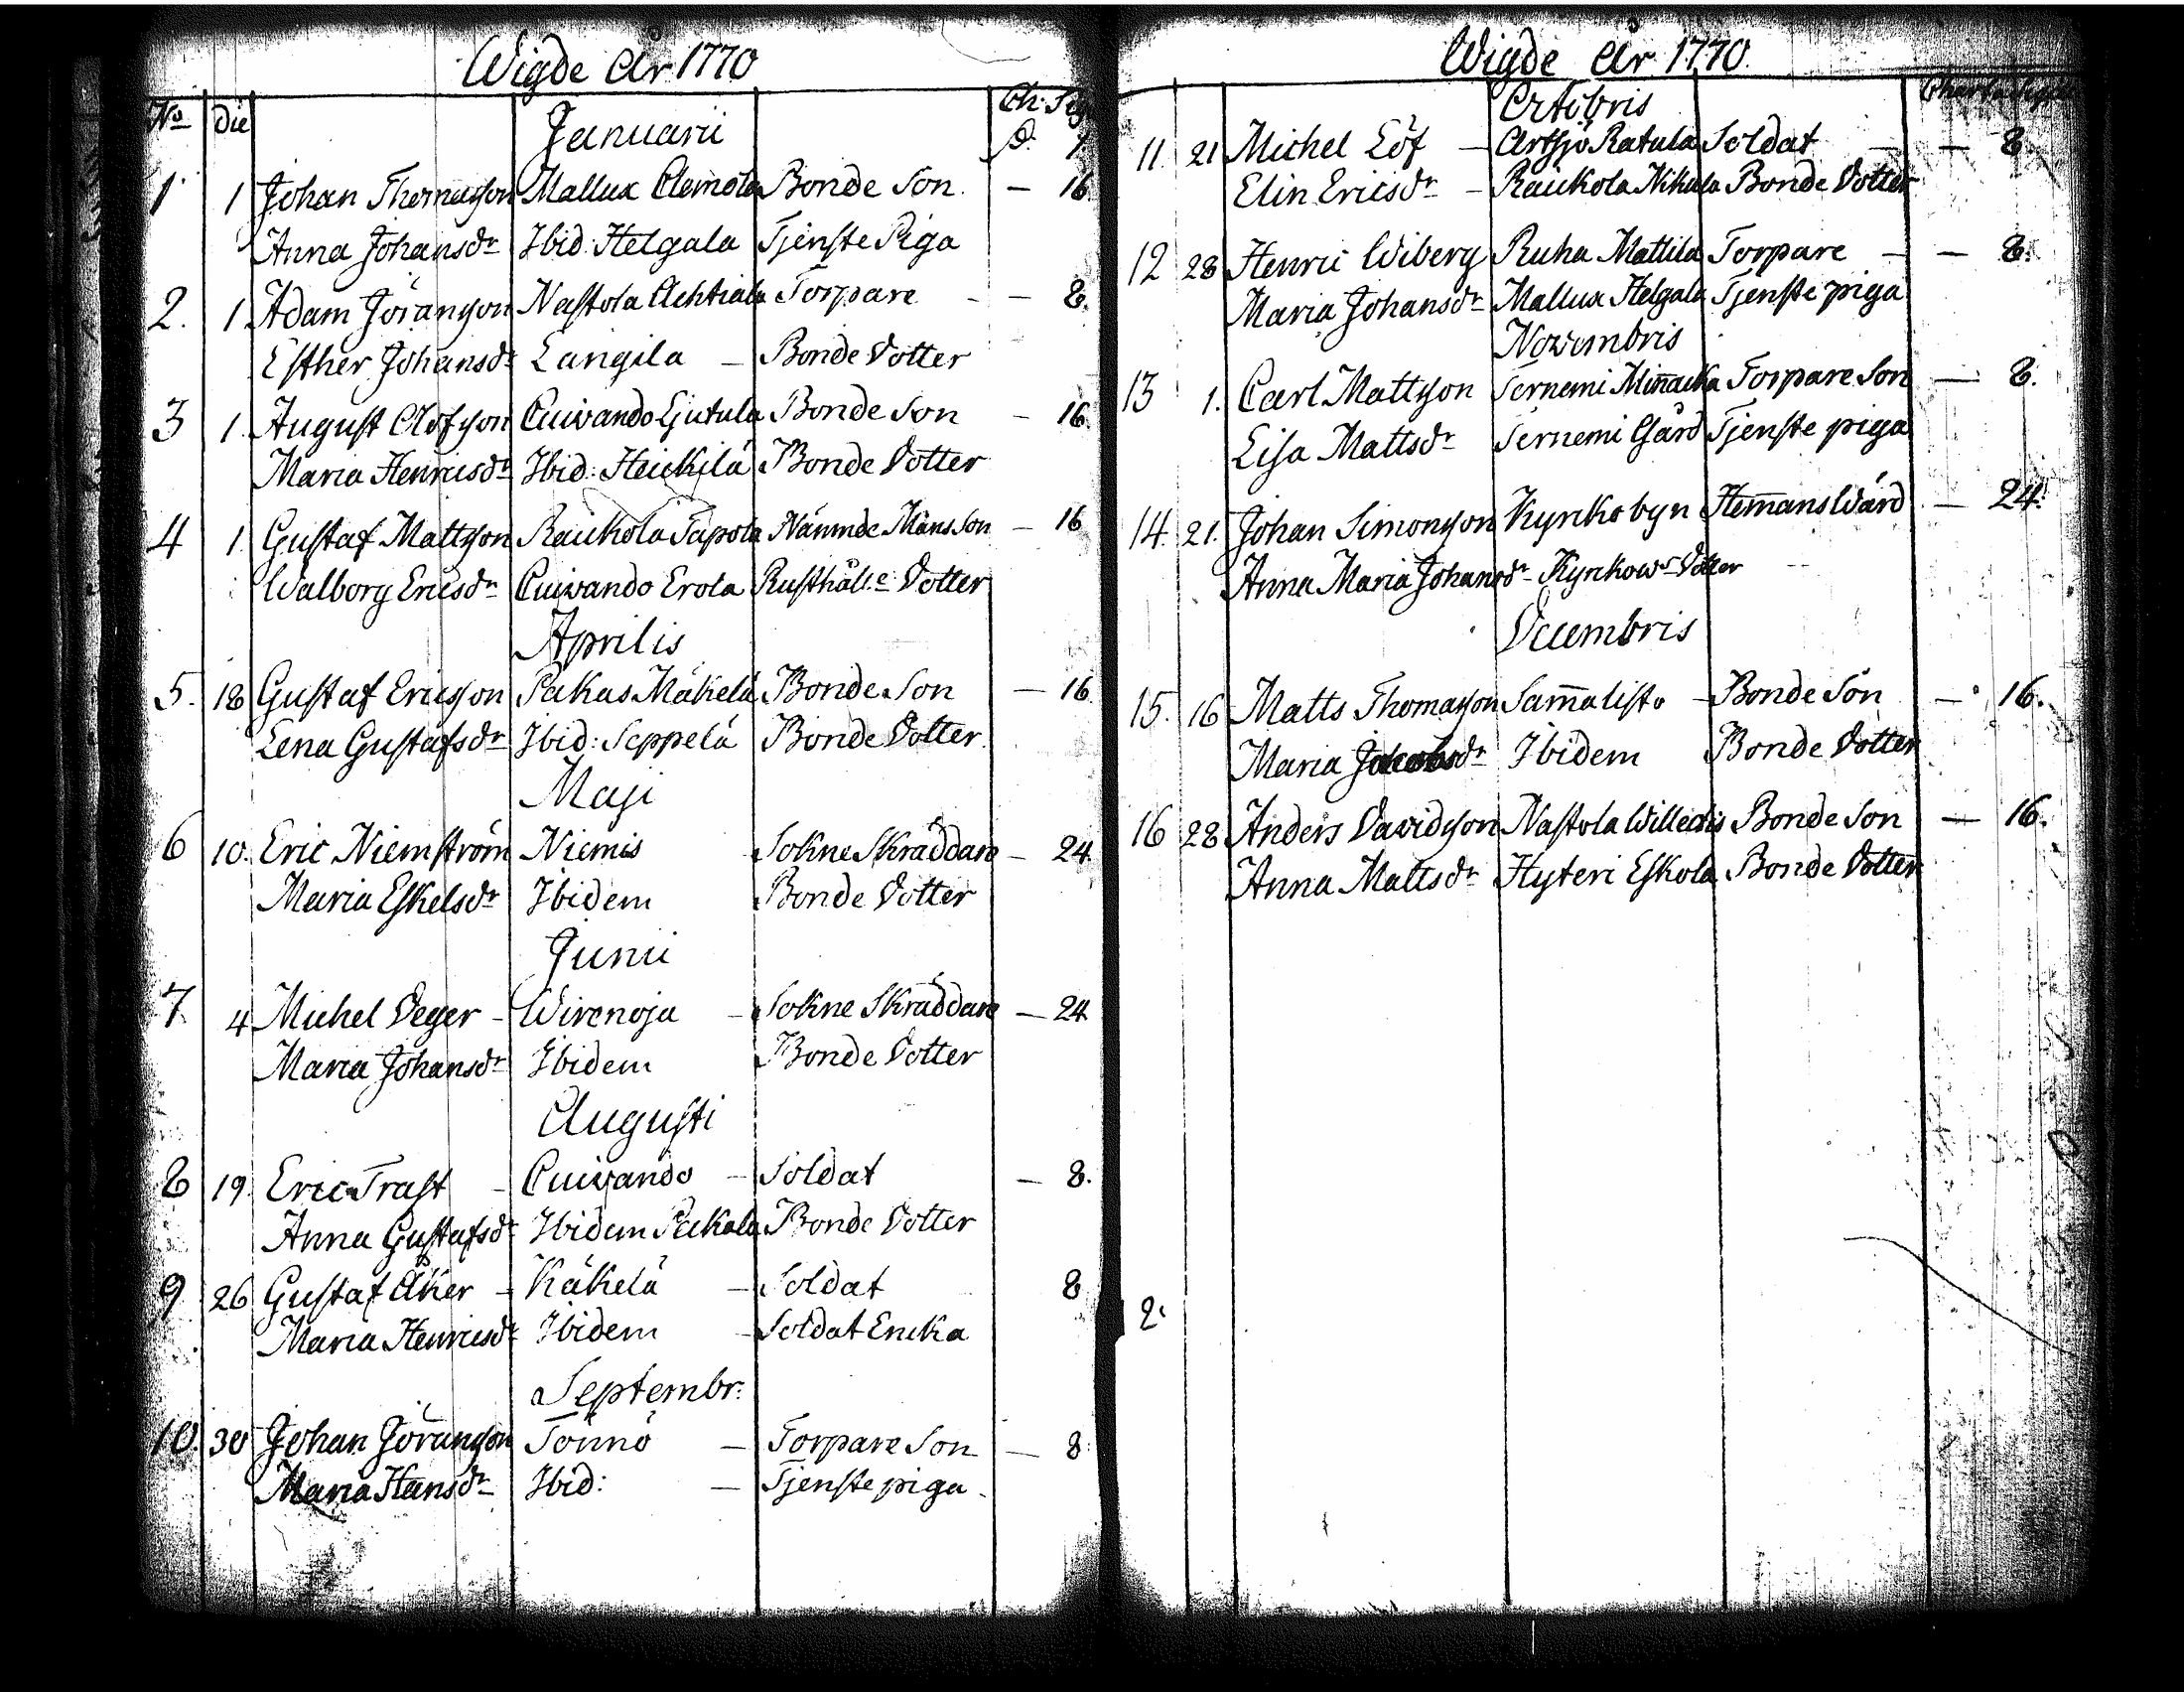 Wigde År 1770
No die Ch: Sig
Januarii
1 1 Johan Thomasson Mallux Clemola Bonde Son — 16
Anna Johansdr Ibid: Helgala Tjenste Piga
2. 1. Adam Jöransson Nastola Achtiala Torpare — 8.
Esther Johansdr Langila — Bonde Dotter
3 1. August Olofsson Cuivando Gutula Bonde Son — 16
Maria Henricsdr Ibid: Heickilä Bonde Dotter
4 1. Gustaf Mattsson Raickola Tapola Nämnde Mans Son — 16
Walborg Ericsdr Cuivando Erola Rusthåll:e Dotter
Aprilis
5. 18 Gustaf Ericsson Pakas Mäkelä Bonde Son — 16
Lena Gustafsdr Ibid: Seppelä Bonde Dotter
Maji
6 10. Eric Niemström Niemis Sokne Skräddare — 24.
Maria Eskelsdr Ibidem Bonde Dotter
Junii
7 4 Michel Deger — Wirenoja — Sokne Skräddare — 24
Maria Johansdr Ibidem Bonde Dotter
Augusti
8 19. Eric Trast — Cuivando — Soldat — 8.
Anna Gustafsdr Ibidem Peckala Bonde Dotter
9 26 Gustaf Åker — Käkelä — Soldat 8
Maria Henricsdr Ibidem — Soldat Encka
Septembr:
10. 30 Johan Jöransson Tönnö — Torpare Son — 8
Maria Hansdr Ibid: — Tjenste piga
Wigde År 1770.
Charta Sigill
Octobris
11. 21 Michel Löf — Artsjö Ratula Soldat — 8
Elin Ericsdr — Raickola Nikula Bonde Dotter
12 28 Henric Wiberg Ruha Mattila Torpare — — 8.
Maria Johansdr Mallux Helgala Tjenste piga
Novembris
13 1. Carl Mattsson Sernemi Minnacka Torpare Son — 8.
Lisa Mattsdr Sernemi Gård Tjenste piga
14. 21. Johan Simonsson Kyrkobyn Hemans Wärd — 24.
Anna Maria Johansdr Kyrkowr Dotter
Decembris
15. 16 Matts Thomasson Sammalisto — Bonde Son — 16.
Maria Jakobsdr Ibidem Bonde Dotter
16 28 Anders Davidsson Nastola Bonde Son — 16.
Anna Mattsdr Hyteri Eskola Bonde Dotter
2.